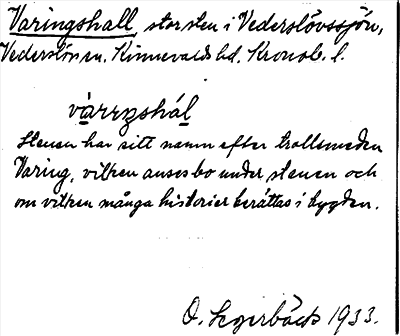 Varingshall, stor sten i Vederslövssjön,
Vederslövs sn. Kinnevalds hd. Kronob. l.
vàrrzshál
Stenen har sitt namn efter trollsmeden
Varing, vilken anses bo under stenen och
om vilken många historier berättas i bygden.
O. Segerbäck 1933.